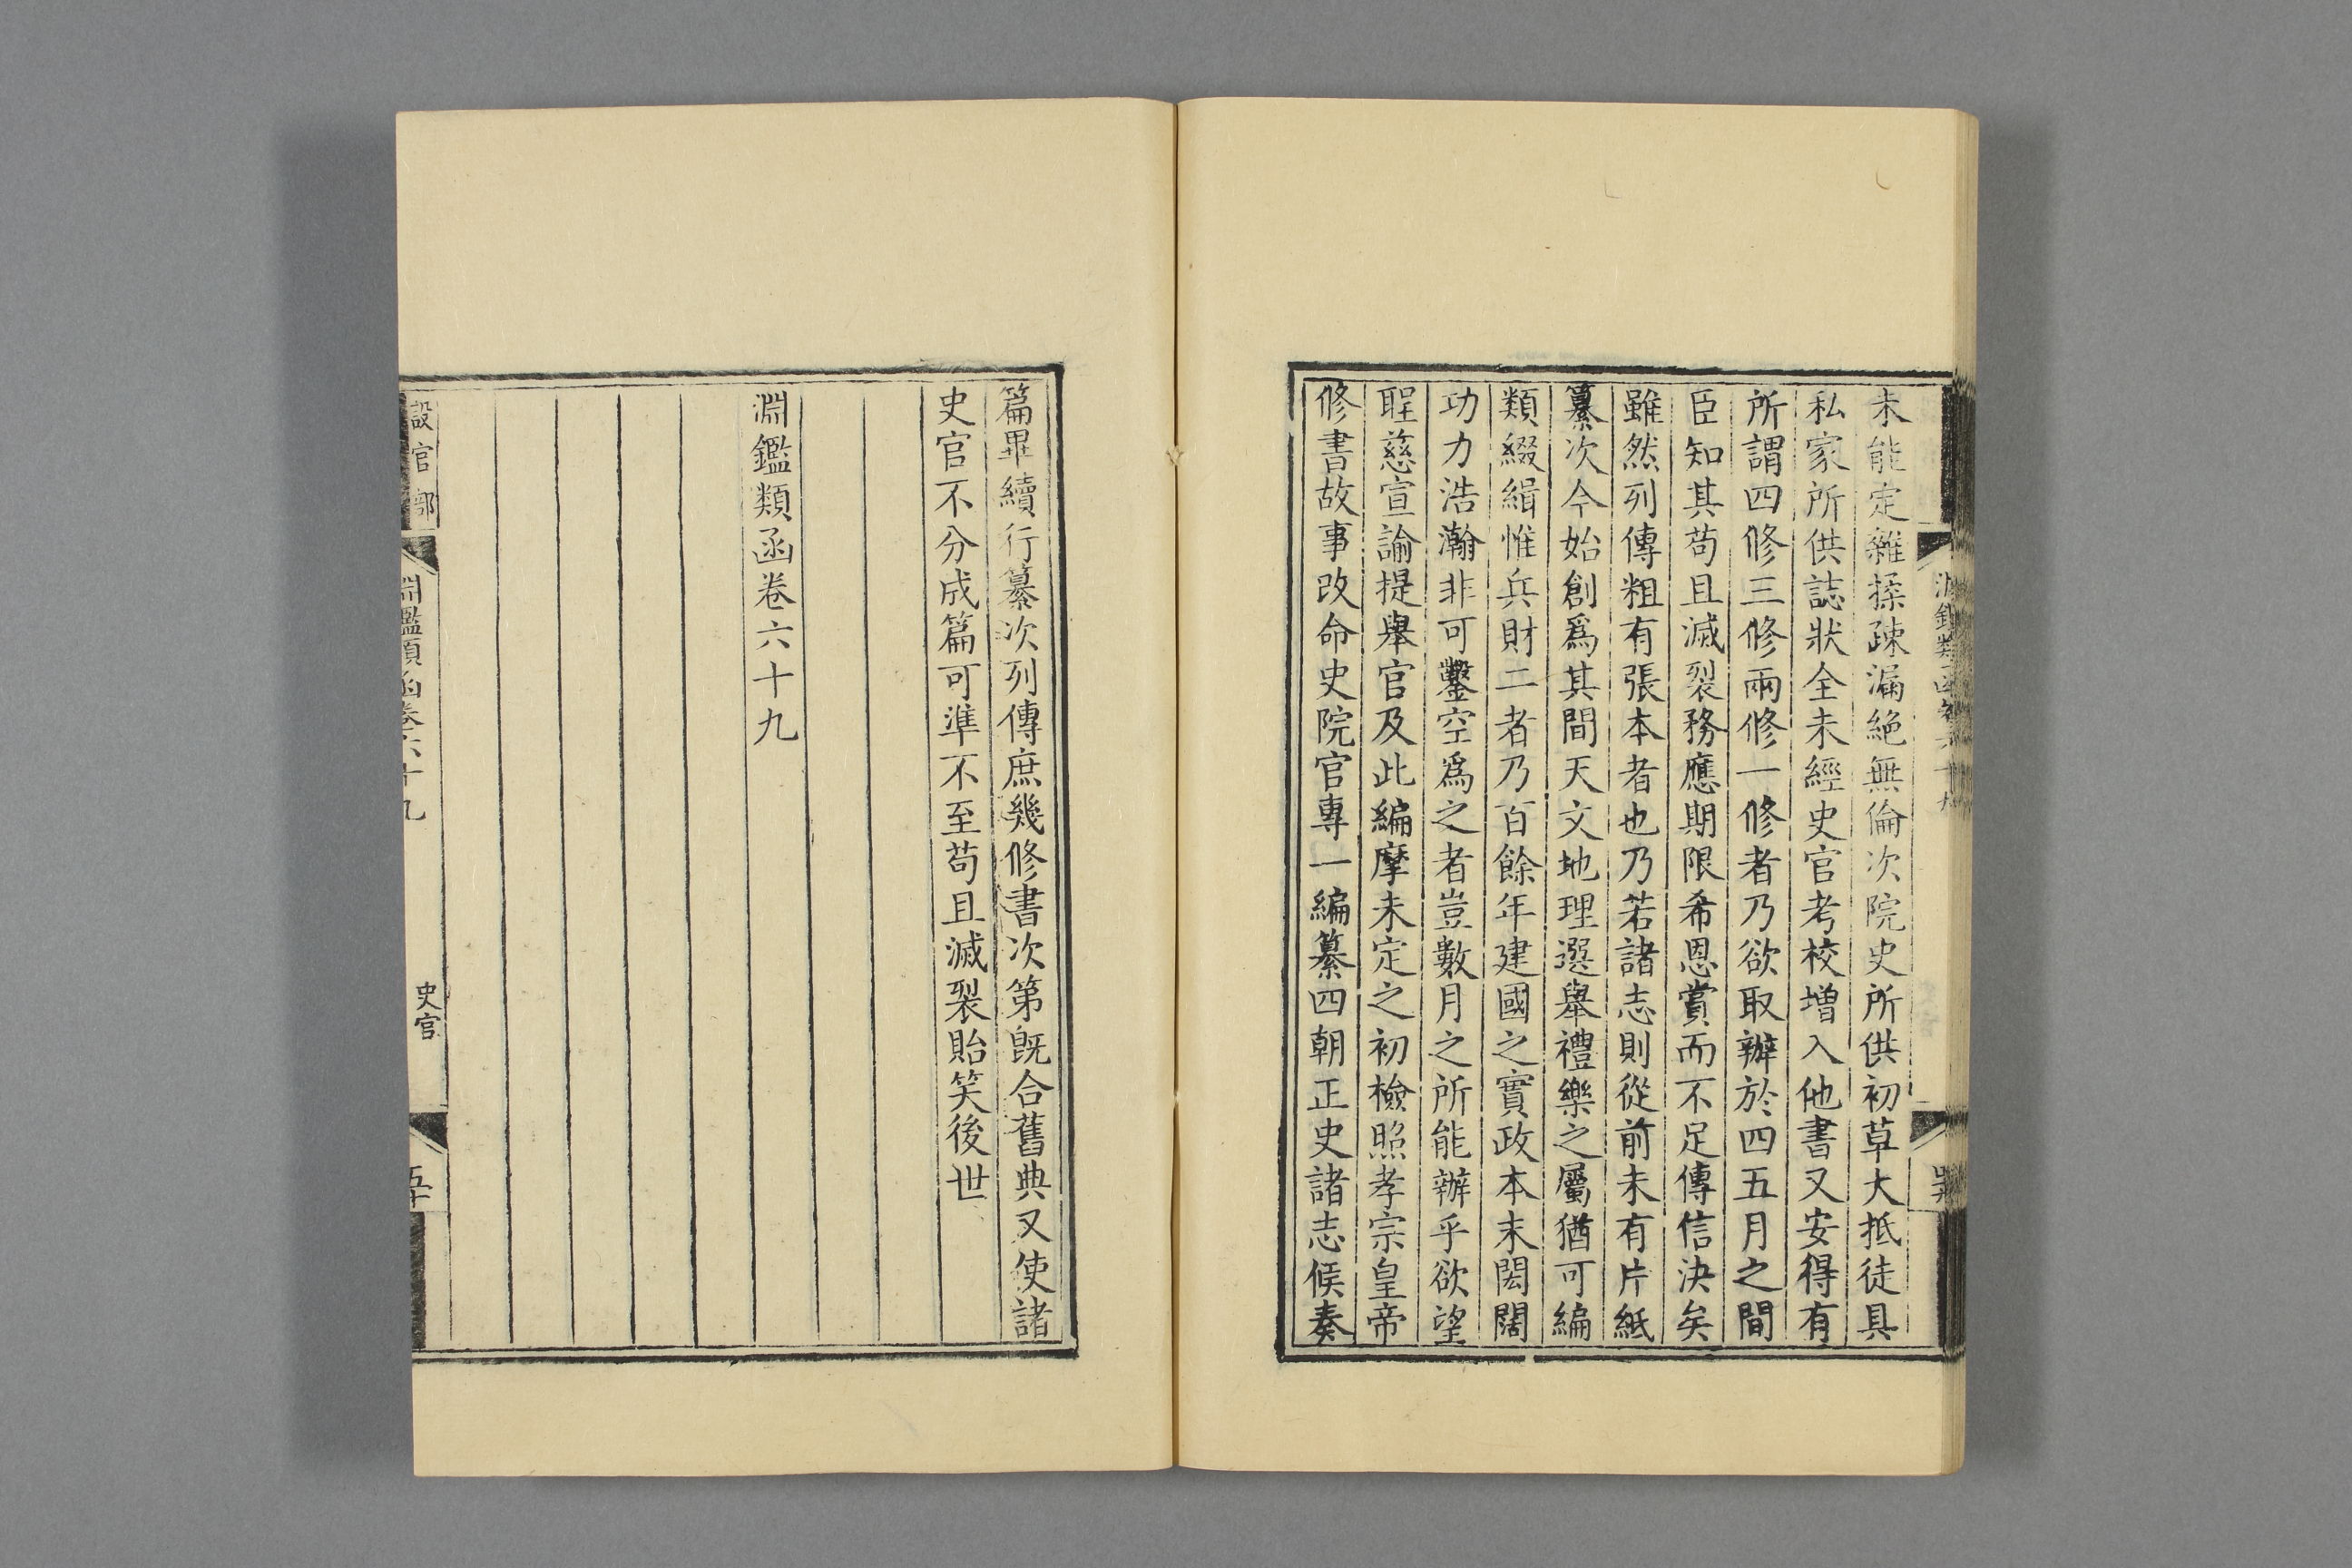 未能定雜揉疎漏絶無倫次院史所供初草大抵徒具
私家所供誌狀全未經史官考校增入他書又安得有
所謂四修三修兩修一修者乃欲取辦於四五月之間
臣知其苟且滅裂務應期限希恩賞而不足傳信決矣
雖然列傳粗有張本者也乃若諸志則從前未有片紙
纂次今始創爲其間天文地理選舉禮樂之屬猶可編
類綴緝惟兵財二者乃百餘年建國之實政本末閎闊
功力浩瀚非可鑿空爲之者豈數月之所能辦乎欲望
聖慈宣諭提舉官及此編摩未定之初檢照孝宗皇帝
修書故事改命史院官專一編纂四朝正史諸志候奏
篇畢續行纂次列傳庶幾修書次第旣合舊典又使諸
史官不分成篇可準不至苟且滅裂貽笑後世
淵鑑類函卷六十九
設官部
淵鑑類函卷六十九
史官
五十